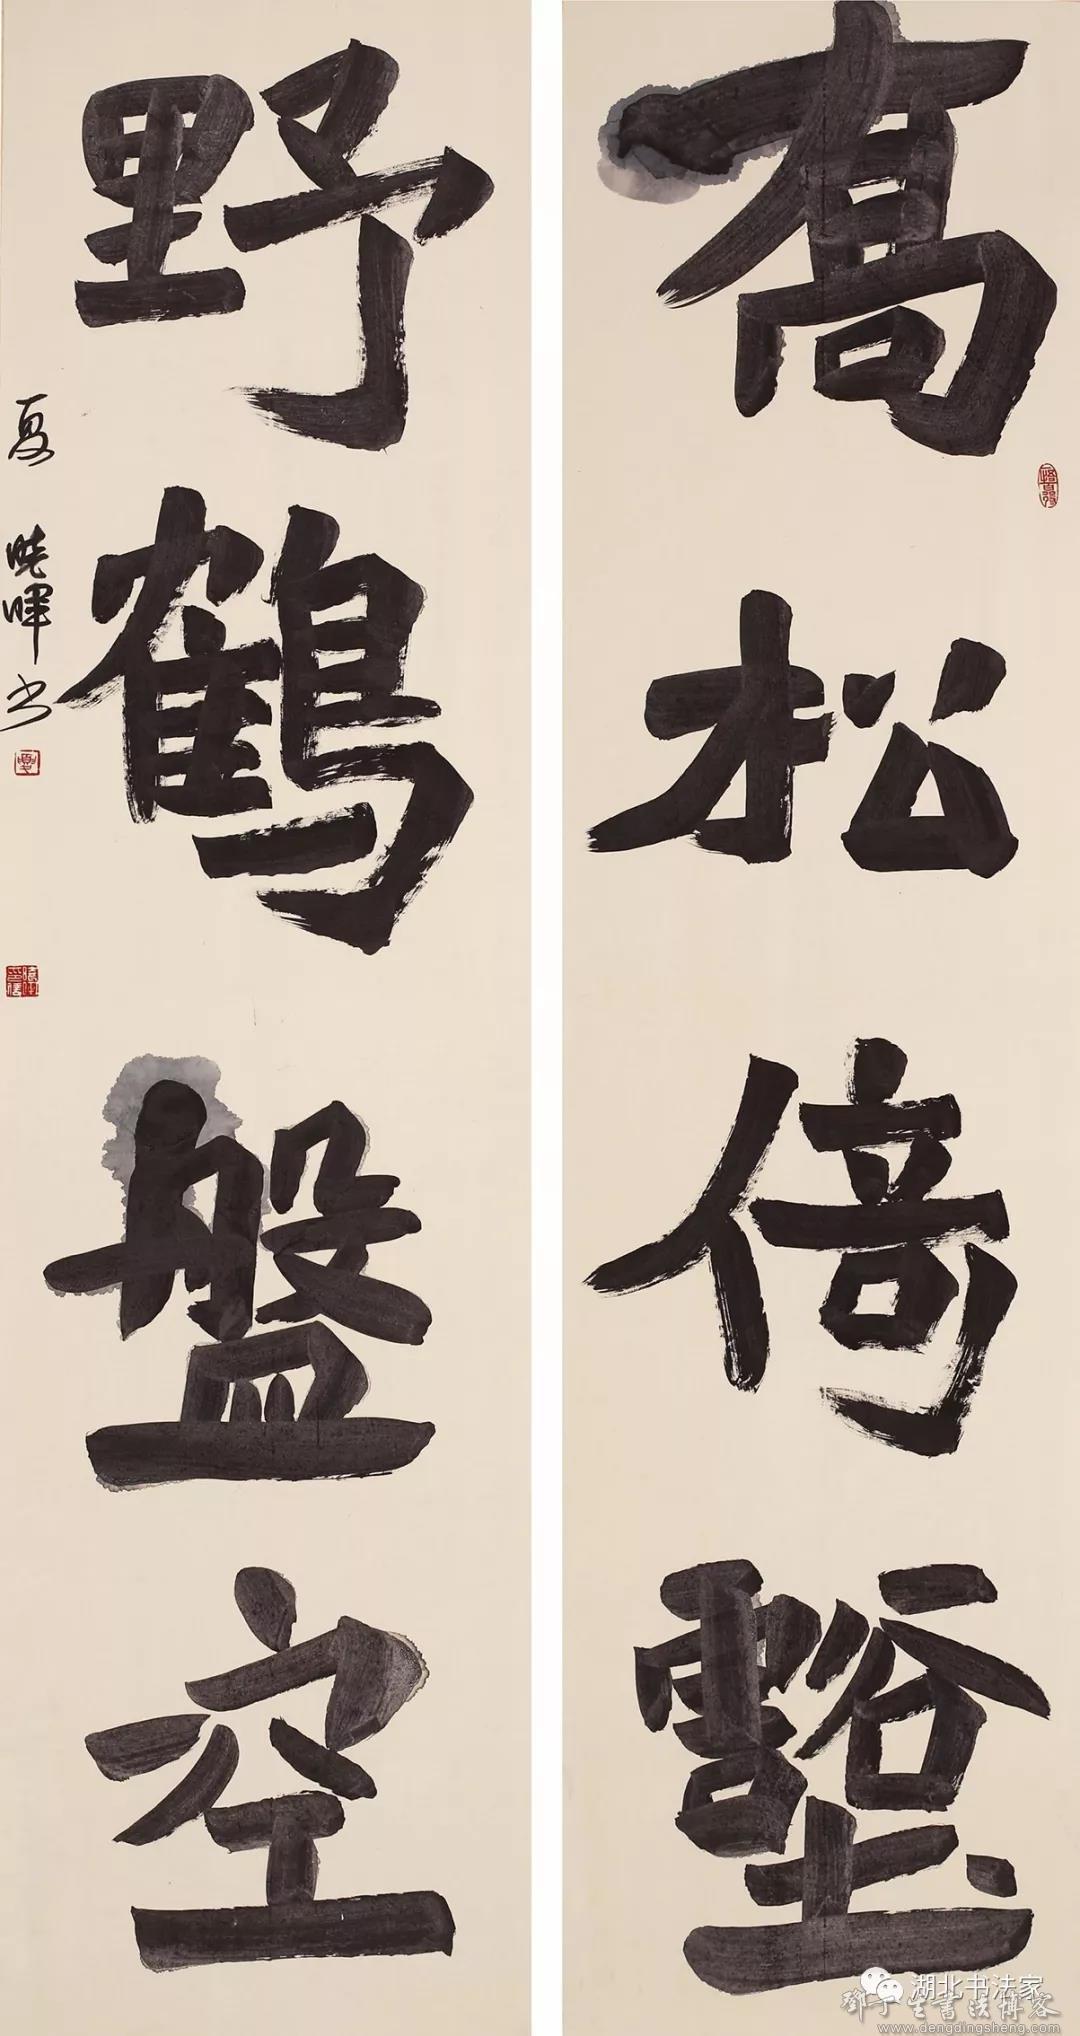 高松倚壑
野鶴盤空
夏 曉暉书
湖北书法家
鄧丁生書法博客
www.dengdingsheng.com